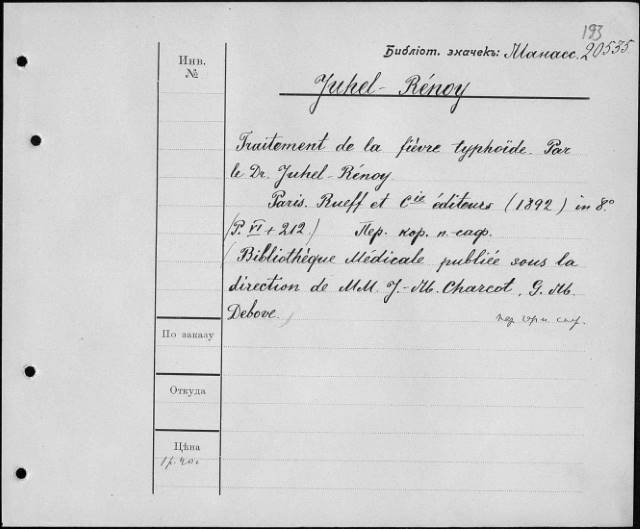 193
Библіот. значекъ: Манасс. 20535
Инв.
№
Juhel-Rénoy
Traitement de la fièvre typhoïde. Par
le Dr. Juhel-Rénoy.
Paris. Rueff et Cie éditeurs (1892) in 8°.
(P. VI + 212.) Пер. кор. п.-саф.
(Bibliothèque Médicale publiée sous la
direction de MM. J.-M. Charcot, G. M.
Debove.)
По заказу
Откуда
Цѣна
1 р. 40 к.